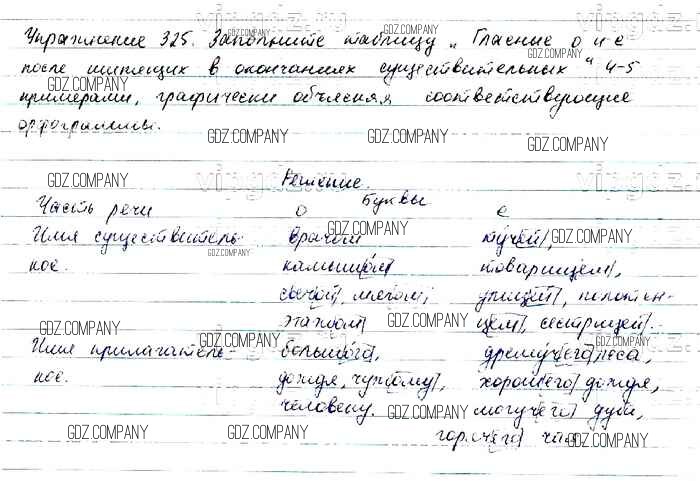 Упражнение 325. Заполните таблицу „Гласные о и е
после шипящих в окончаниях существительных“ 4-5
примерами, графически объясняя соответствующие
орфограммы.
Решение.
Часть речи Буквы
о е
Имя существитель- врачом тучей,
ное. камышом товарищем,
свечой, мячом, пищей, полотен-
этажом цем, сестрицей.
Имя прилагатель- большого, дремучего леса,
ное. дождя, чужому, хорошего дождя,
человеку. могучего дуба,
горячего чая
GDZ.COMPANY